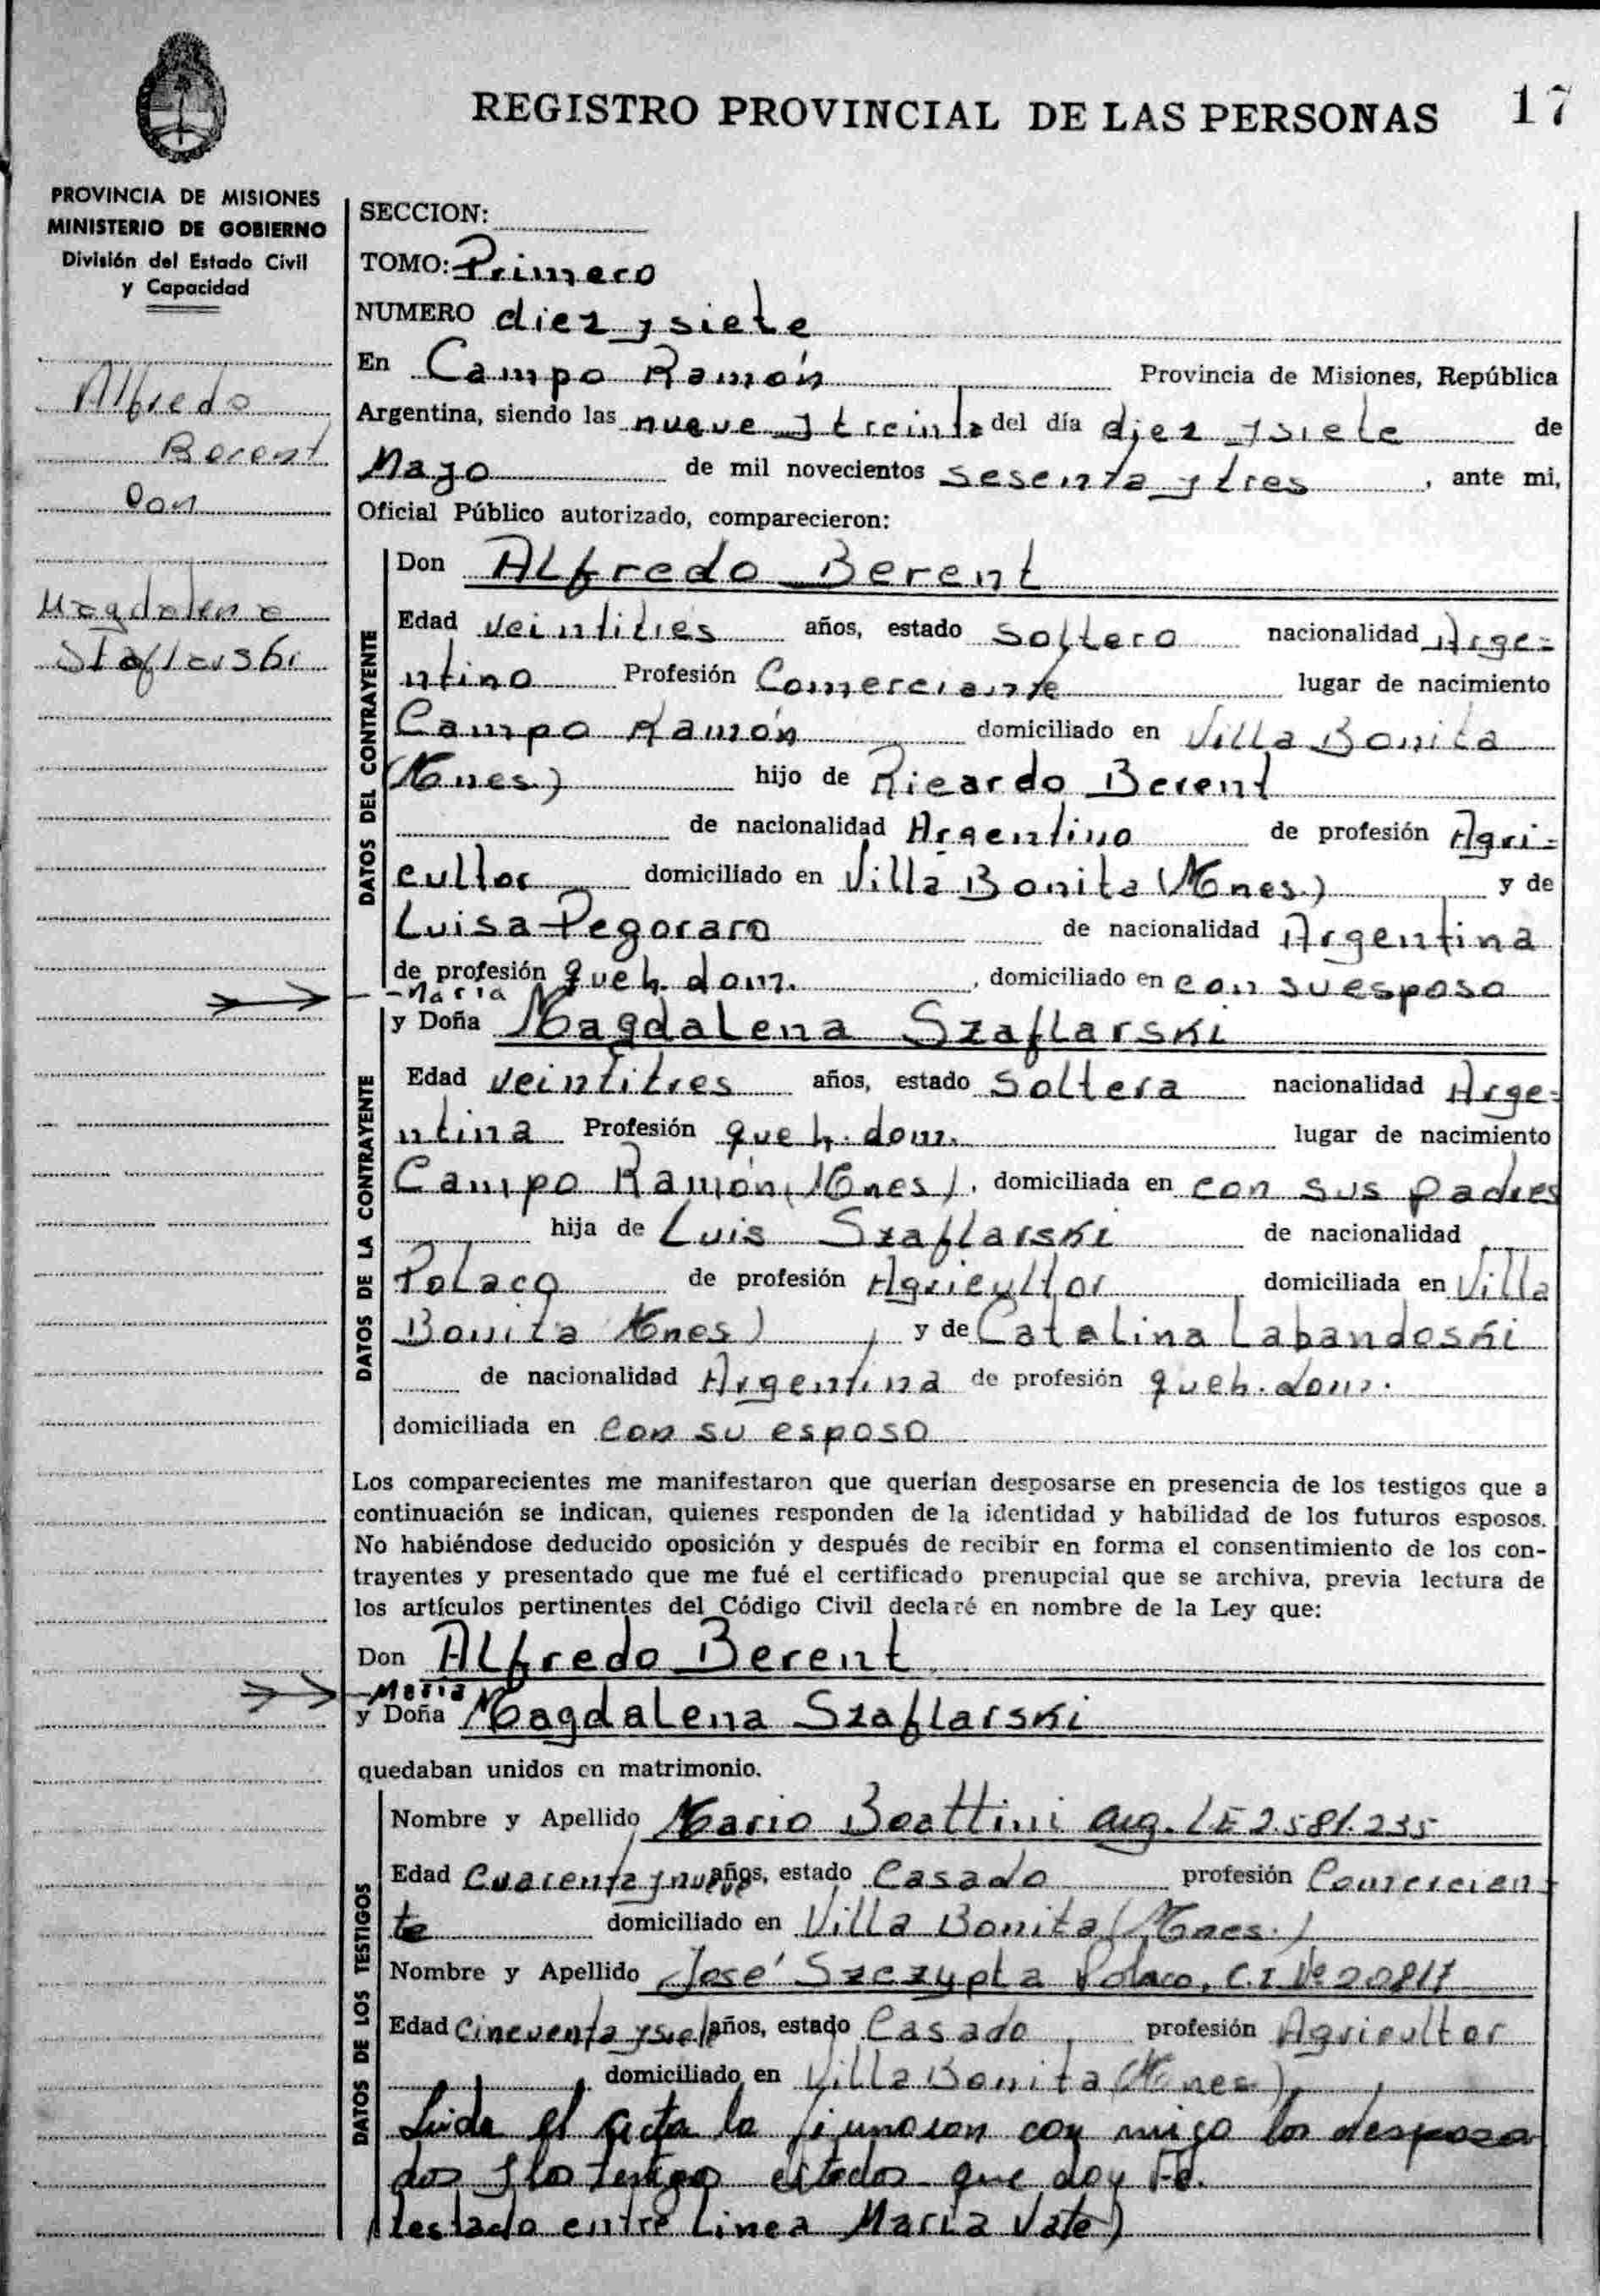 REGISTRO PROVINCIAL DE LAS PERSONAS 17
PROVINCIA DE MISIONES
MINISTERIO DE GOBIERNO
División del Estado Civil
y Capacidad
Alfredo
Berent
con
Magdalena
Szaflarski
SECCION:
TOMO: Primero
NUMERO diez y siete
En Campo Ramón Provincia de Misiones, República
Argentina, siendo las nueve y treinta del día diez y siete de
Mayo de mil novecientos sesenta y tres, ante mi,
Oficial Público autorizado, comparecieron:
DATOS DEL CONTRAYENTE
Don Alfredo Berent
Edad veintitres años, estado soltero nacionalidad Arge=
ntino Profesión Comerciante lugar de nacimiento
Campo Ramón domiciliado en Villa Bonita
(Mnes) hijo de Ricardo Berent
de nacionalidad Argentino de profesión Agri=
cultor domiciliado en Villa Bonita (Mnes.) y de
Luisa Pegoraro de nacionalidad Argentina
de profesión queh. dom., domiciliado en con su esposo
-Maria
y Doña Magdalena Szaflarski
DATOS DE LA CONTRAYENTE
Edad veintitres años, estado soltera nacionalidad Arge=
ntina Profesión queh. dom. lugar de nacimiento
Campo Ramón (Mnes), domiciliada en con sus padres
hija de Luis Szaflarski de nacionalidad
Polaco de profesión Agricultor domiciliada en Villa
Bonita (Mnes) y de Catalina Labandoski
de nacionalidad Argentina de profesión queh. dom.
domiciliada en con su esposo
Los comparecientes me manifestaron que querían desposarse en presencia de los testigos que a
continuación se indican, quienes responden de la identidad y habilidad de los futuros esposos.
No habiéndose deducido oposición y después de recibir en forma el consentimiento de los con-
trayentes y presentado que me fué el certificado prenupcial que se archiva, previa lectura de
los artículos pertinentes del Código Civil declaré en nombre de la Ley que:
Don Alfredo Berent
-Maria
y Doña Magdalena Szaflarski
quedaban unidos en matrimonio.
DATOS DE LOS TESTIGOS
Nombre y Apellido Mario Boattini arg. LE 2.581.235
Edad cuarenta y nueve años, estado Casado profesión Comercian=
te domiciliado en Villa Bonita (Mnes.)
Nombre y Apellido José Szczypta Polaco, C.I Nº 20817
Edad cincuenta y siete años, estado Casado profesión Agricultor
domiciliado en Villa Bonita (Mnes)
Leida el acta la firmaron con migo los desposa
dos y los testigos citados que doy Fé.
(testado entre linea Maria Vale)